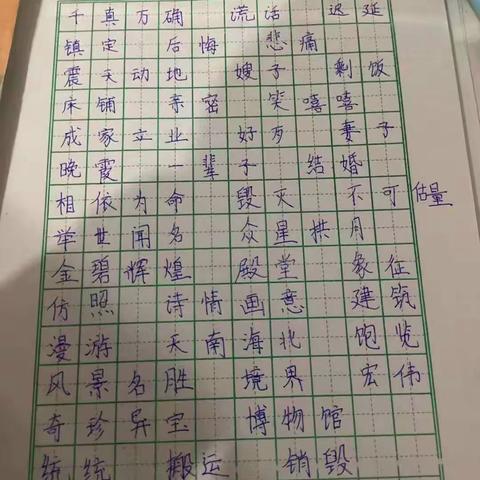 千真万确 谎话 迟延
镇定 后悔 悲痛
震天动地 嫂子 剩饭
床铺 亲密 笑嘻嘻
成家立业 好歹 妻子
晚霞 一辈子 结婚
相依为命 毁灭 不可估量
举世闻名 众星拱月
金碧辉煌 殿堂 象征
仿照 诗情画意 建筑
漫游 天南海北 饱览
风景名胜 境界 宏伟
奇珍异宝 博物馆
统统 搬运 销毁